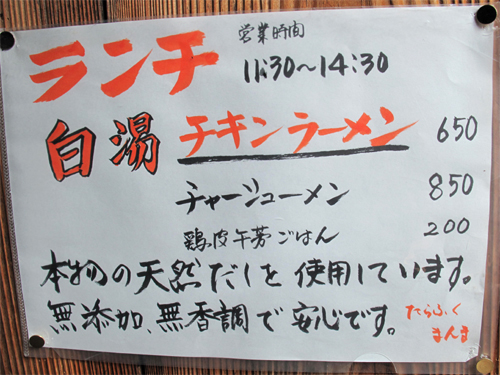 ランチ 営業時間 11:30〜14:30
白湯 チキンラーメン 650
チャーシューメン 850
鶏皮牛蒡ごはん 200
本物の天然だしを使用しています。
無添加、無香調で安心です。
たらふく
まんま